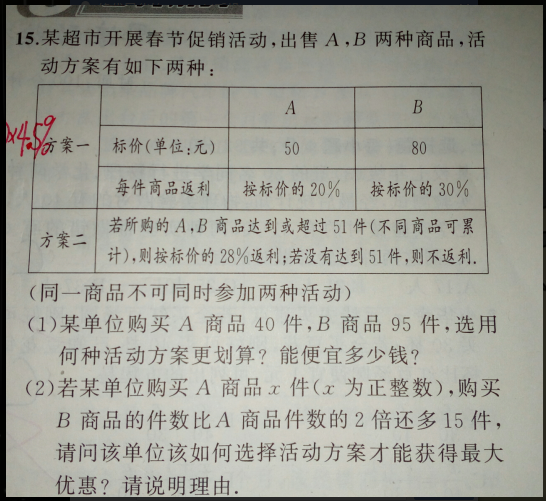 15.某超市开展春节促销活动,出售 A,B 两种商品,活
动方案有如下两种:
A B
方案一 标价(单位:元) 50 80
每件商品返利 按标价的 20% 按标价的 30%
方案二 若所购的 A,B 商品达到或超过 51 件(不同商品可累
计),则按标价的 28%返利;若没有达到 51 件,则不返利.
(同一商品不可同时参加两种活动)
(1)某单位购买 A 商品 40 件,B 商品 95 件,选用
何种活动方案更划算? 能便宜多少钱?
(2)若某单位购买 A 商品 x 件(x 为正整数),购买
B 商品的件数比 A 商品件数的 2 倍还多 15 件,
请问该单位该如何选择活动方案才能获得最大
优惠? 请说明理由.